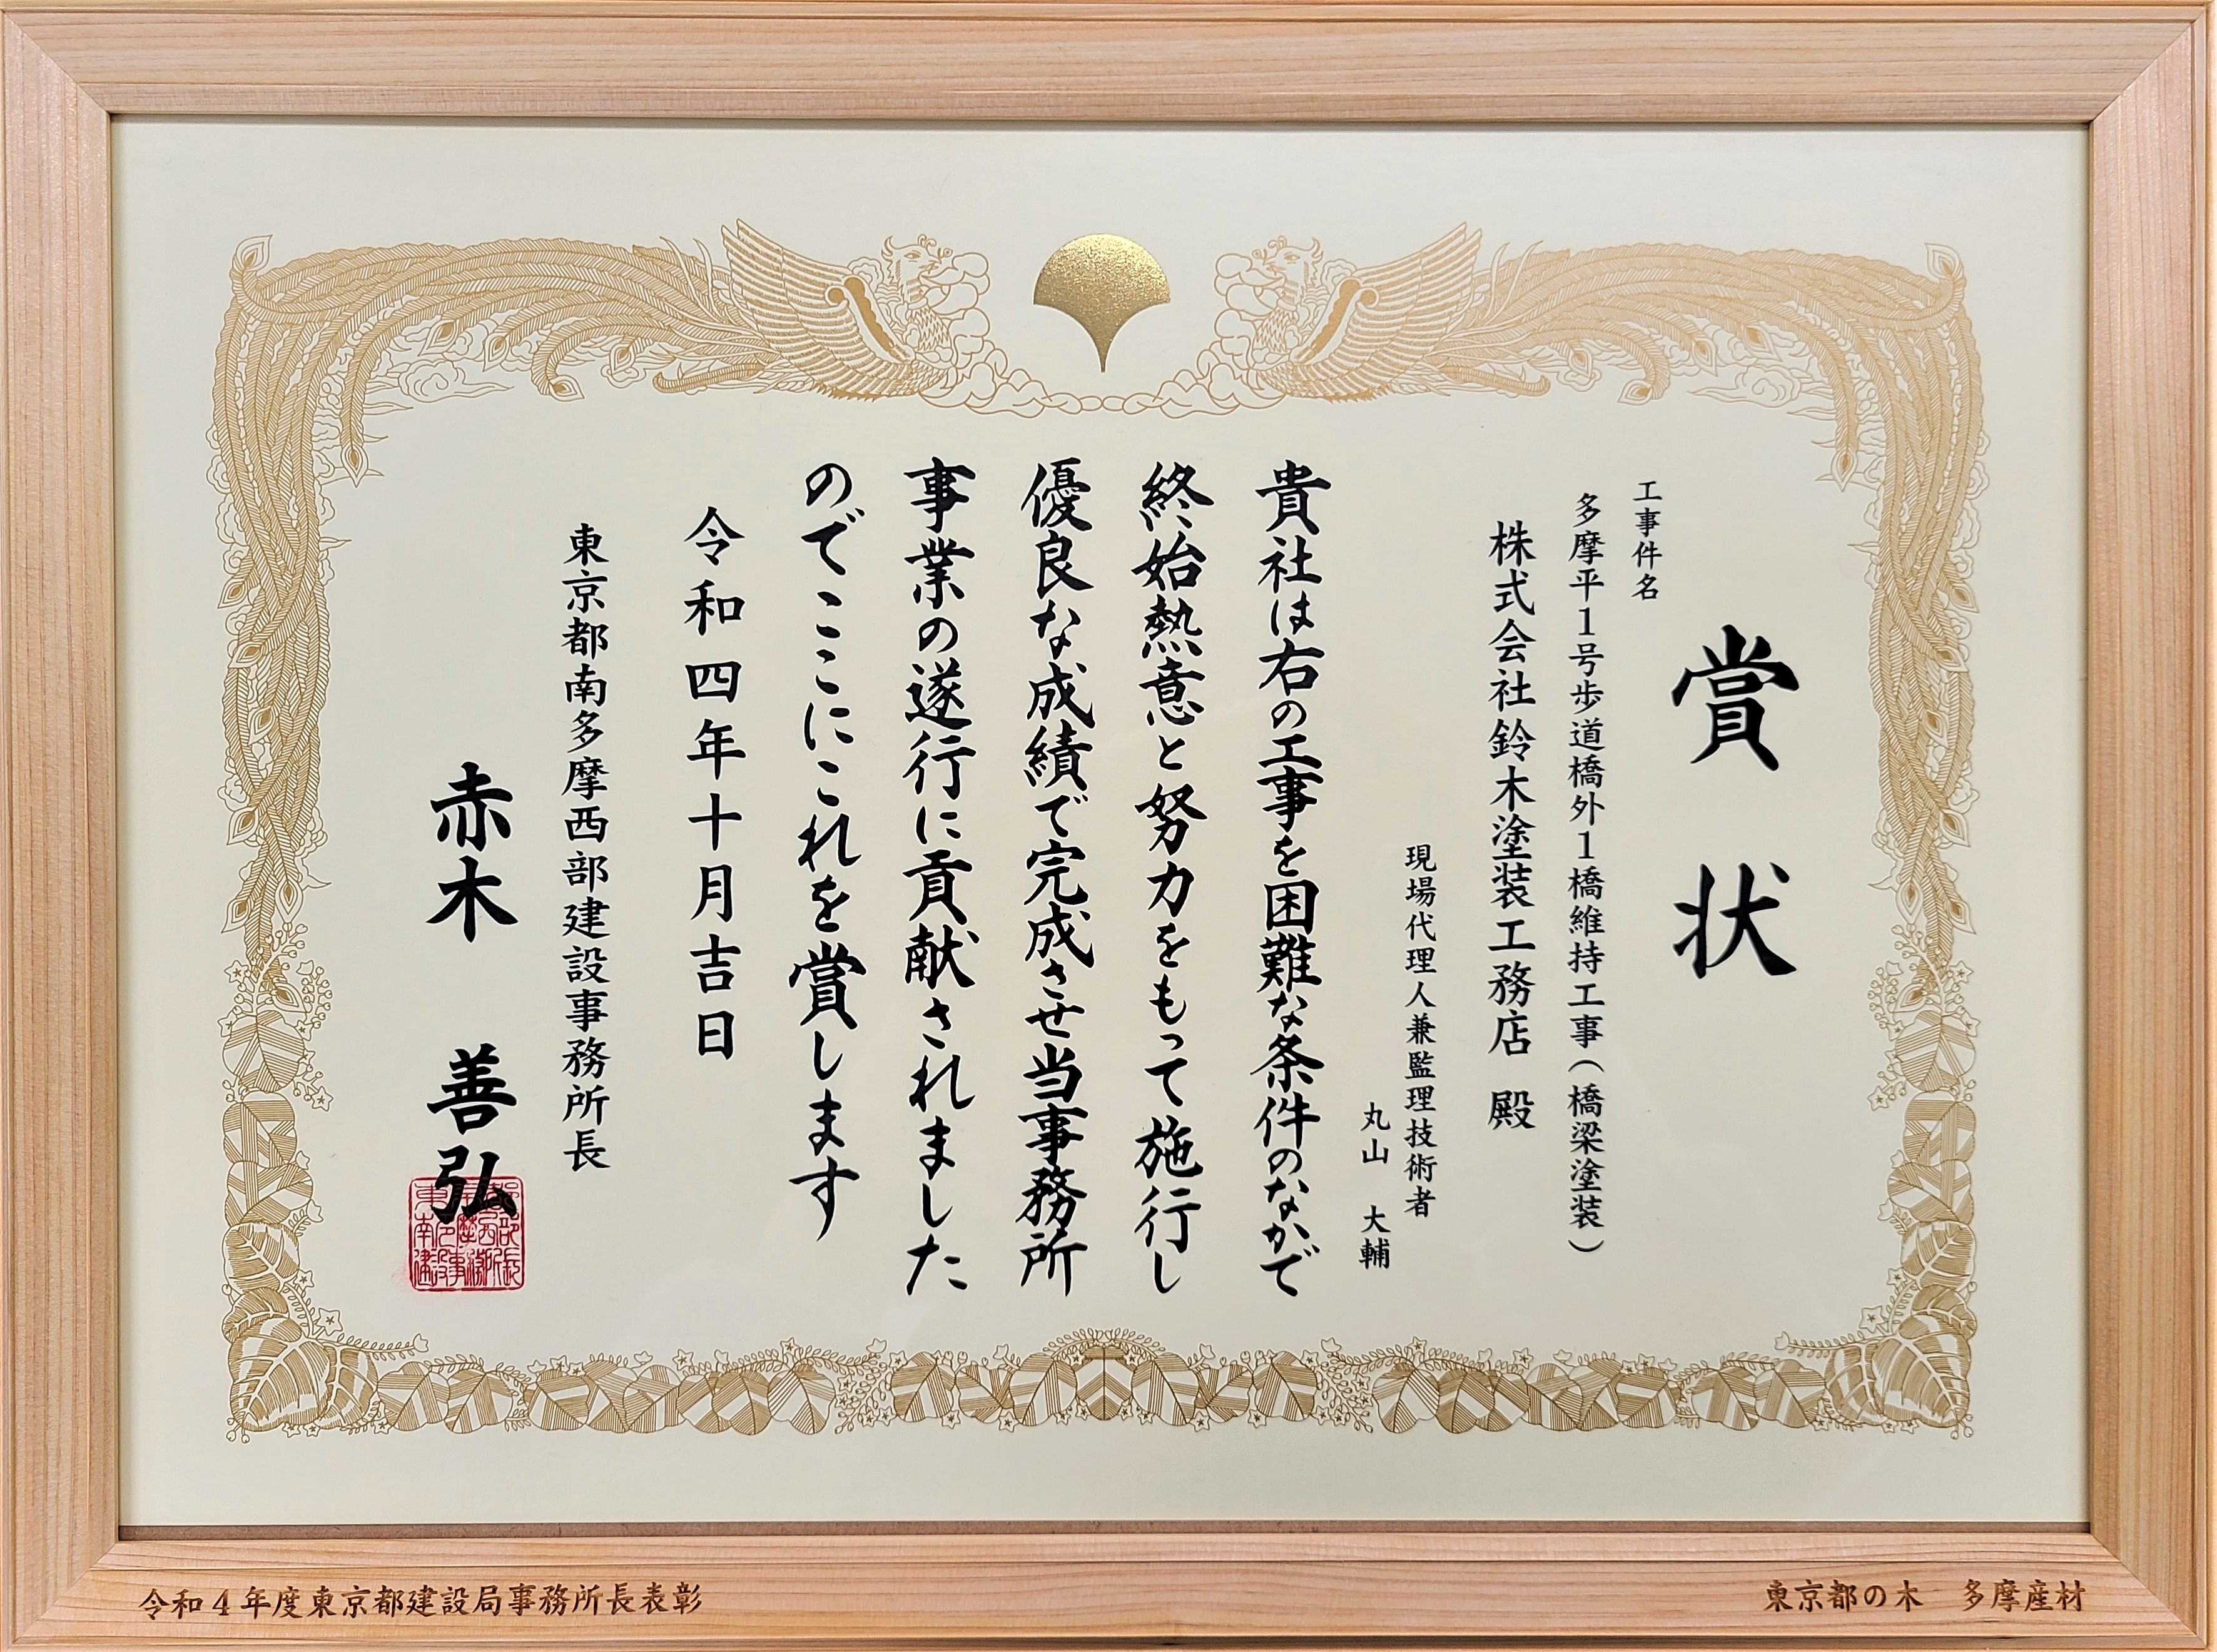 賞状
工事件名
多摩平1号歩道橋外1橋維持工事(橋梁塗装)
株式会社鈴木塗装工務店 殿
現場代理人兼監理技術者
丸山 大輔
貴社は右の工事を困難な条件のなかで
終始熱意と努力をもって施行し
優良な成績で完成させ当事務所
事業の遂行に貢献されました
のでここにこれを賞します
令和四年十月吉日
東京都南多摩西部建設事務所長
赤木 善弘
令和4年度東京都建設局事務所長表彰
東京都の木 多摩産材